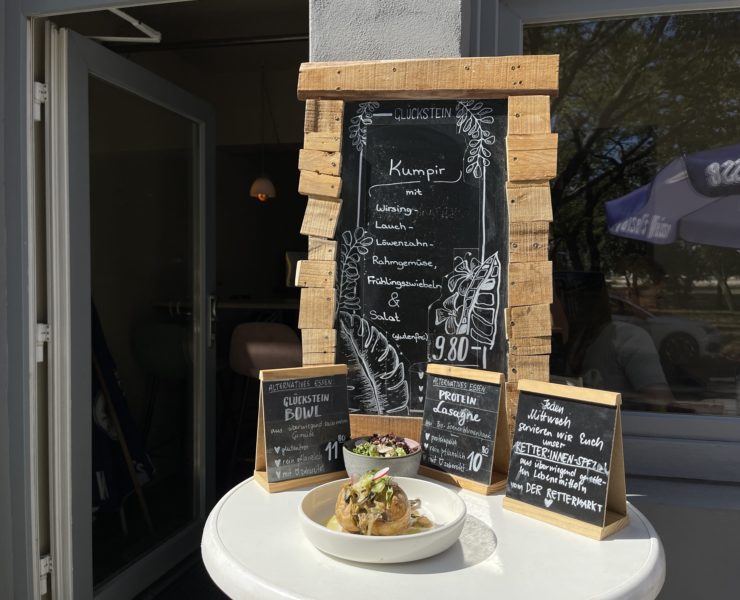 GLÜCKSTEIN
Kumpir
mit
Wirsing-
Lauch-
Löwenzahn-
Rahmgemüse,
Frühlingszwiebeln
&
Salat
(glutenfrei)
9.80
ALTERNATIVES ESSEN:
GLÜCKSTEIN
BOWL
aus überwiegend
Gemüse
glutenfrei
rein pflanzlich
mit zubereitet
11
ALTERNATIVES ESSEN:
PROTEIN
Lasagne
rein pflanzlich
mit zubereitet
10
Jeden
Mittwoch
servieren wir Euch
unser
RETTER:INNEN-SPEZIAL
aus überwiegend gerette-
ten Lebensmitteln
vom DER RETTERMARKT